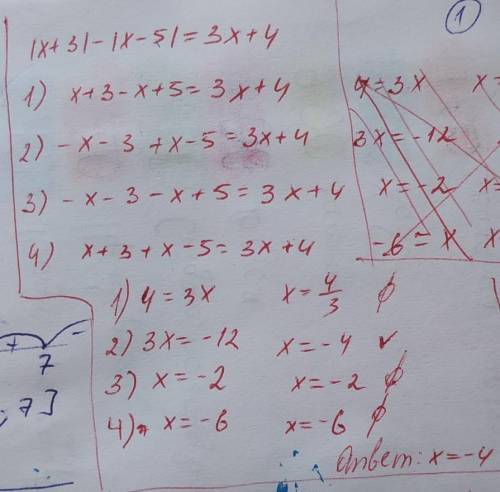 |x+3|-|x-5|=3x+4
1) x+3-x+5=3x+4
2) -x-3+x-5=3x+4
3) -x-3-x+5=3x+4
4) x+3+x-5=3x+4
1) 4=3x x=4/3 ∅
2) 3x=-12 x=-4 ✓
3) x=-2 x=-2 ∅
4) x=-6 x=-6 ∅
Ответ: x=-4
1
=3x x=
3x=-12
x=-2 x=
-6=x x
+ -
7
; 7]